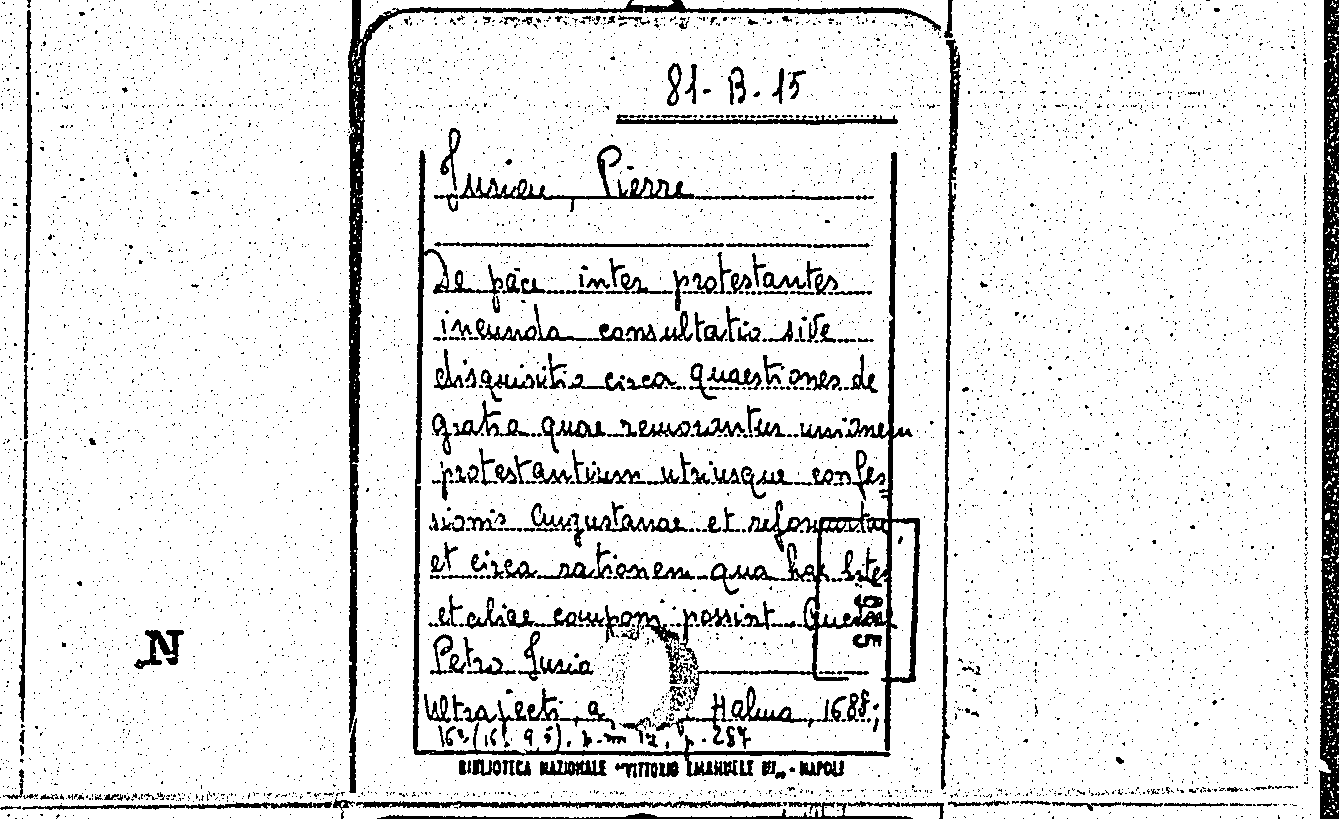 81-B-15
Jurieu, Pierre
De pace inter protestantes
ineunda consultatio sive
disquisitio circa quaestiones de
gratia quae remorantur unionem
protestantium utriusque confes=
sionis Augustanae et reformatae
et circa rationem qua hae lites
et aliae componi possint.
Petro Juria
Ultrajecti, a Halma, 1688;
16º (16, 9,5). p. 287
BIBLIOTECA NAZIONALE "VITTORIO EMANUELE III" - NAPOLI
N